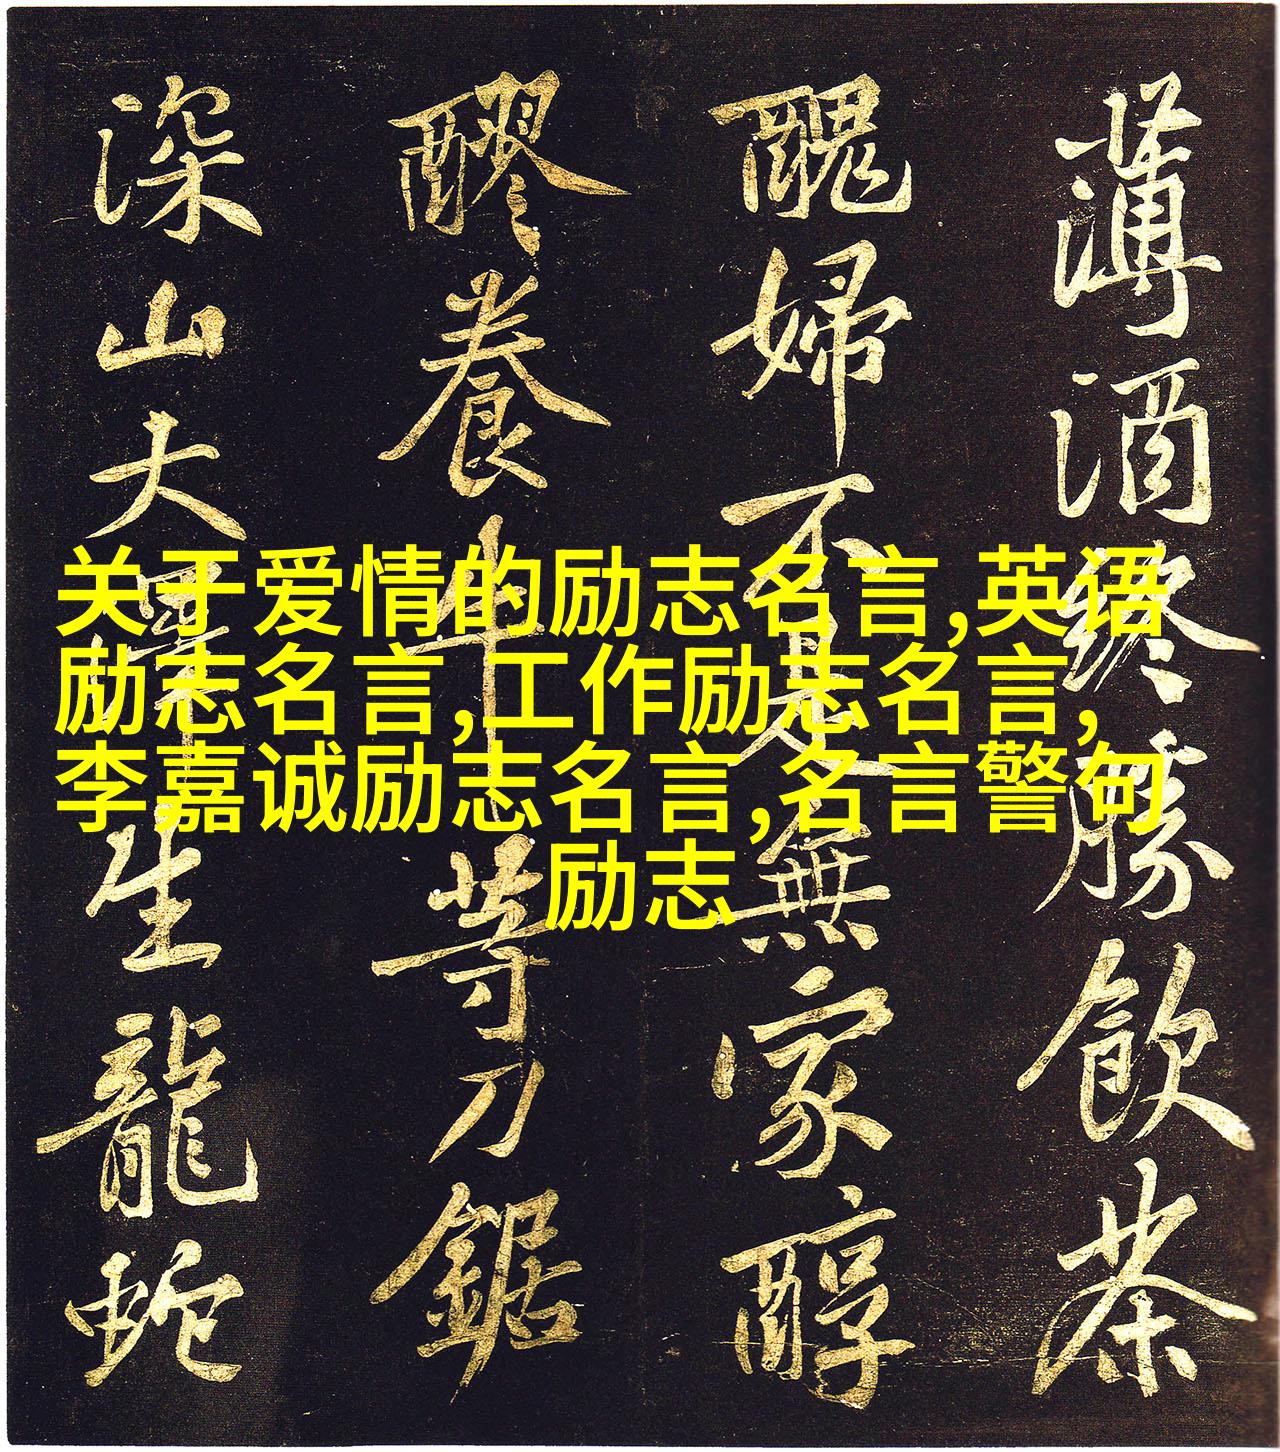 薄酒終勝飲茶
醜婦不是無家醇
醪養牛等刀鋸
深山大澤生龍蛇
关于爱情的励志名言,英语
励志名言,工作励志名言,
李嘉诚励志名言,名言警句
励志